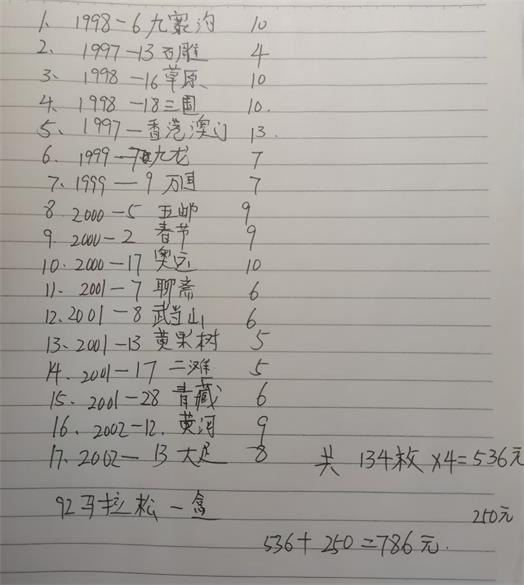 1、 1998-6 九寨沟 10
2、 1997-13 石雕 4
3、 1998-16 草原 10
4、 1998-18 三国 10
5、 1997-香港澳门 13
6. 1999-7 九龙 7
7. 1999-9 万国 7
8. 2000-5 五邮 9
9. 2000-2 春节 9
10. 2000-17 奥运 10
11. 2001-7 聊斋 6
12. 2001-8 武当山 6
13. 2001-13 黄果树 5
14. 2001-17 二滩 5
15. 2001-28 青藏 6
16. 2002-12. 黄河 9
17. 2002-13 大足 8 共 134枚 ×4=536元
92马拉松一盒 250元
536+250=786元.